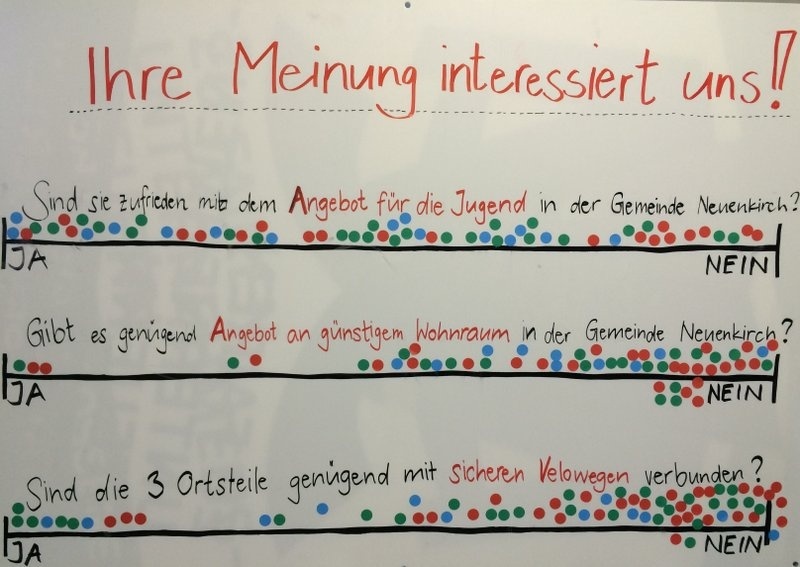 Ihre Meinung interessiert uns!!
Sind sie zufrieden mit dem Angebot für die Jugend in der Gemeinde Neuenkirch?
JA NEIN
Gibt es genügend Angebot an günstigem Wohnraum in der Gemeinde Neuenkirch?
JA NEIN
Sind die 3 Ortsteile genügend mit sicheren Velowegen verbunden?
JA NEIN